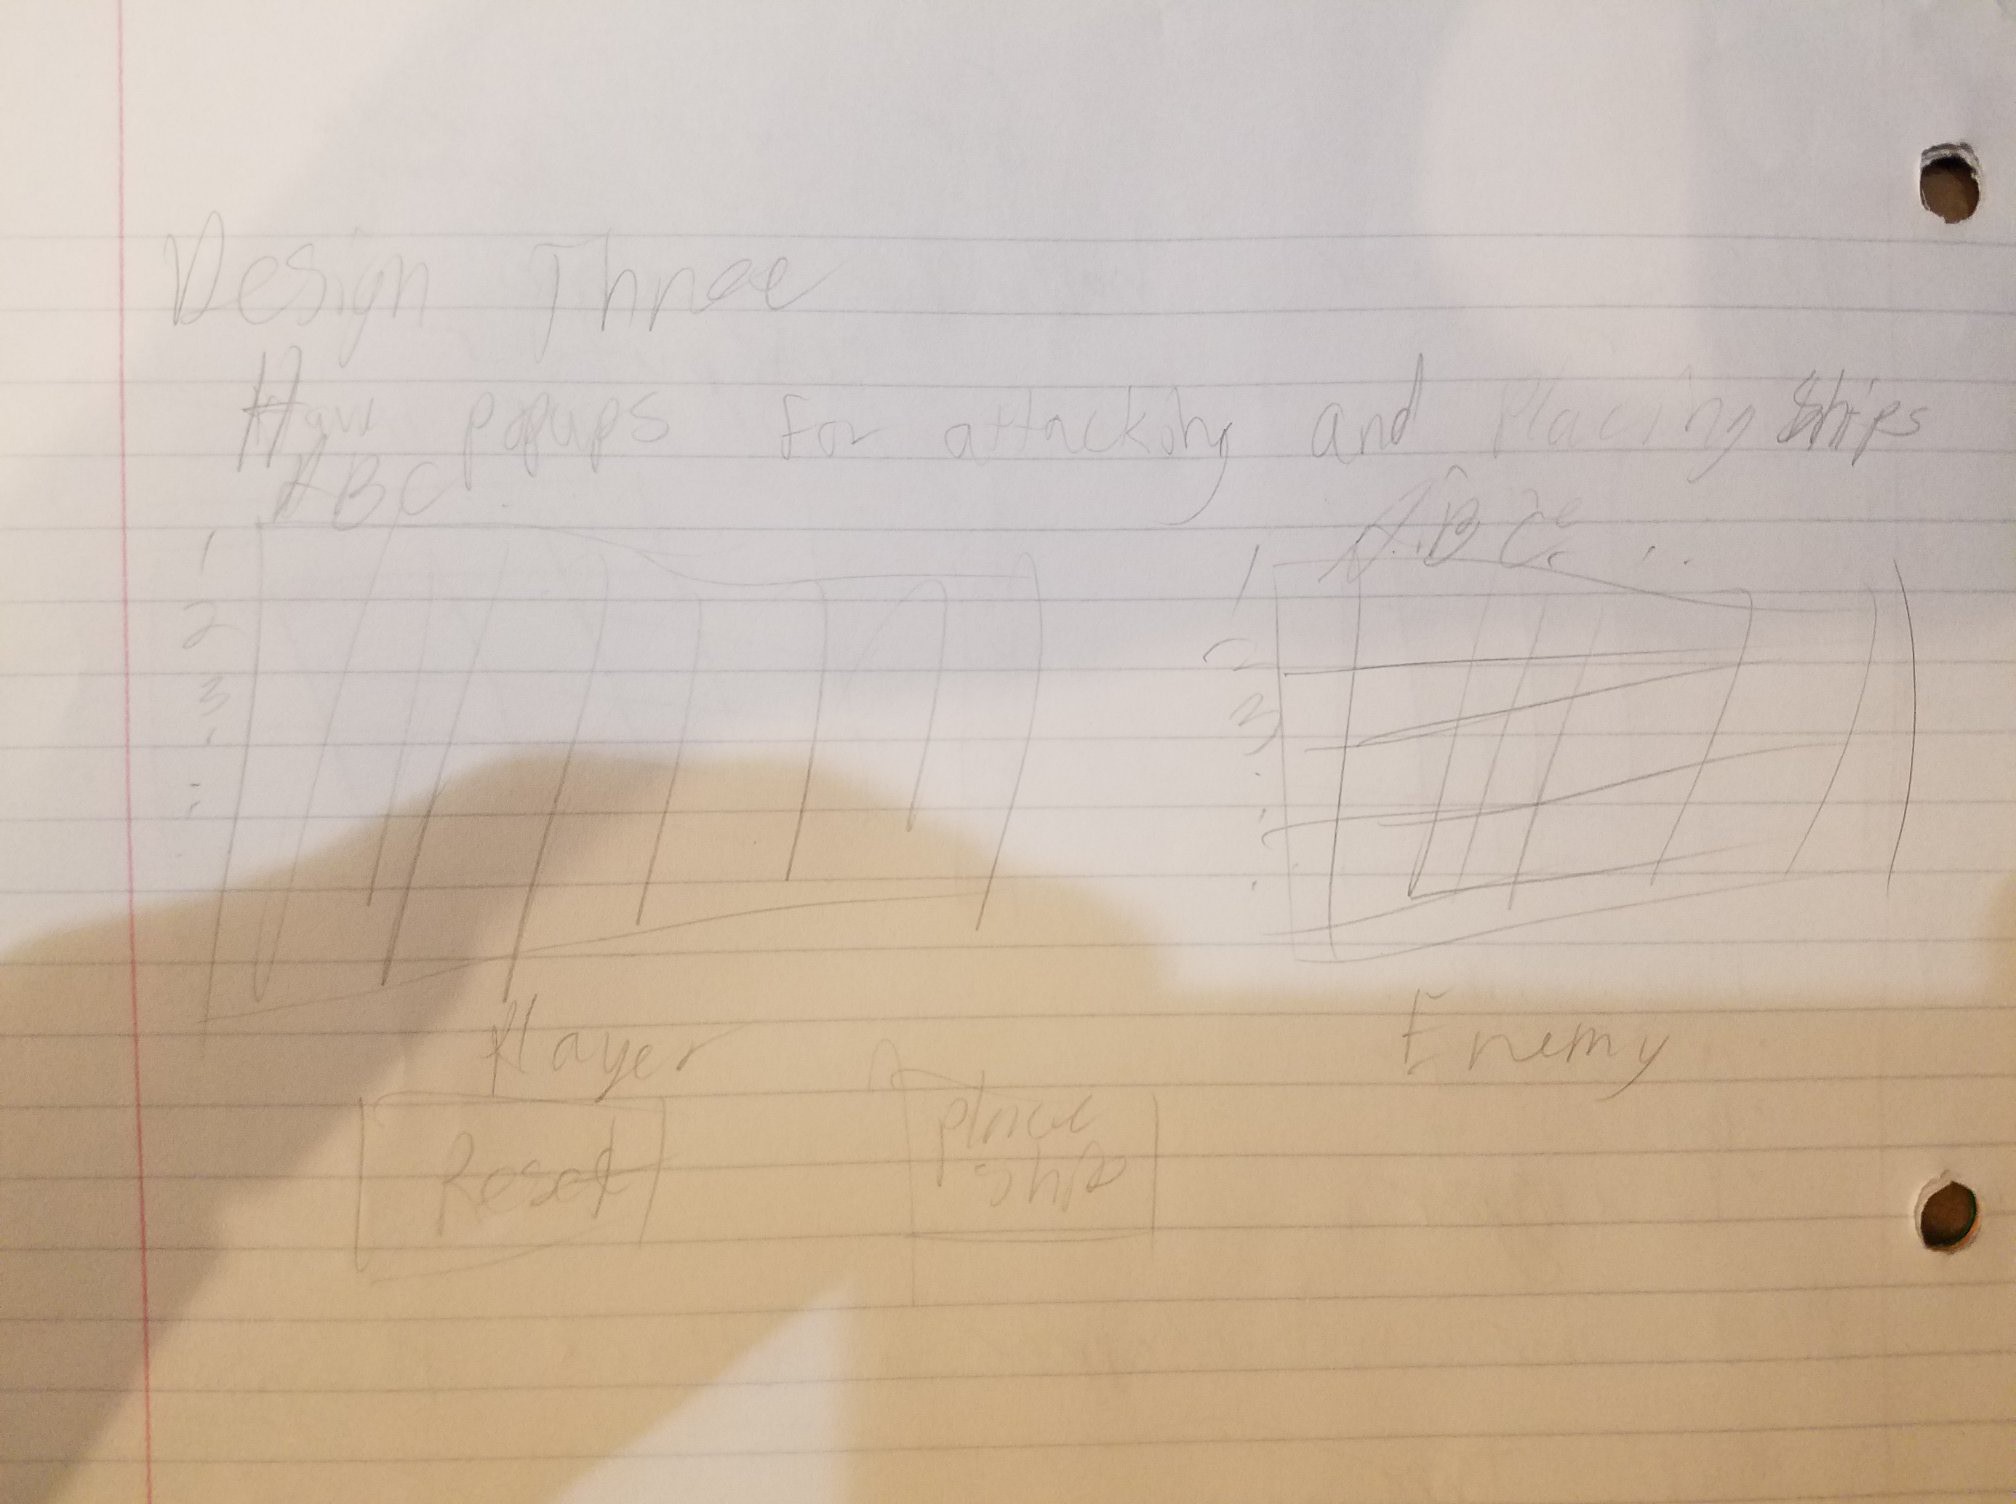 Design Three
Have popups for attacking and placing ships
A B C .
A B C . . .
1
2
3
.
:
1
2
3
.
.
.
Player
Enemy
Reset
place
ship